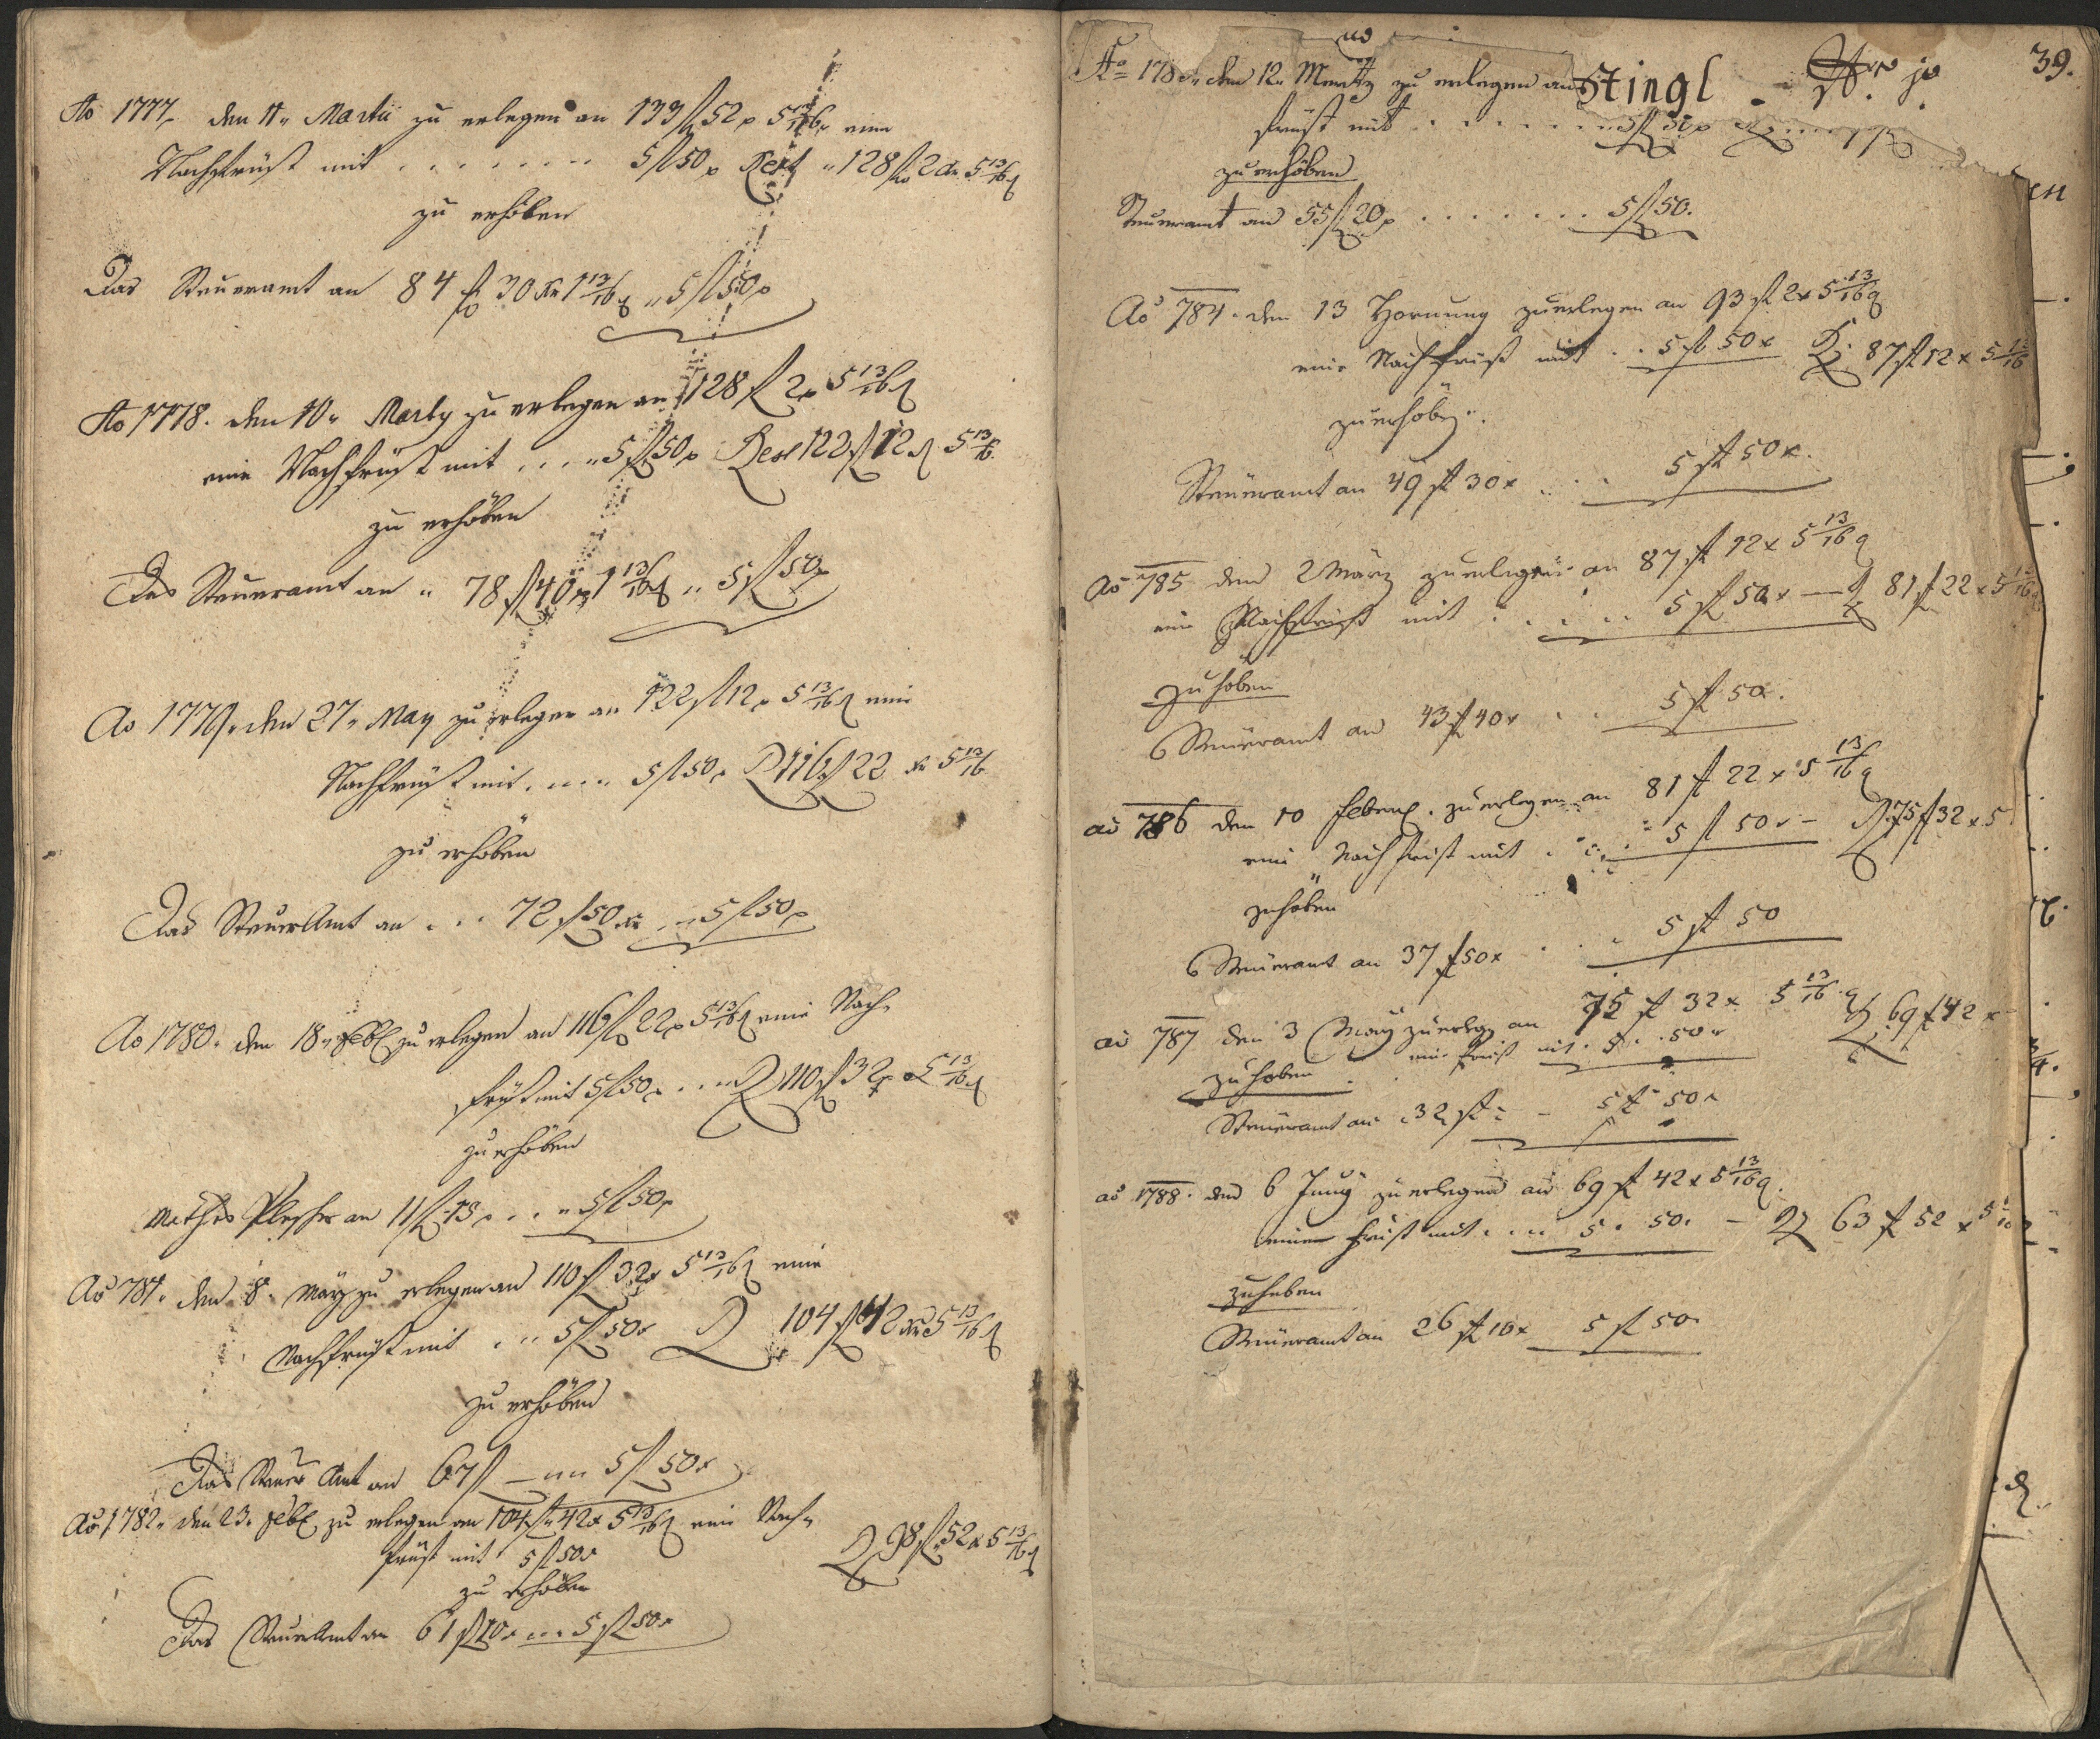 Ao 1777, den 11. Martii zu erlegen an 133 fl 52 x 5 13/16 eine
Nachfrüst mit . . . . . . . 5 fl 50 x Rest 128 fl 2 x 5 13/16 d
zu erhöben
Das Steueramt an 84 fl 30 xr 1 13/16 d 5 fl 50 x
Ao 1778. den 10. Marty zu erlegen an 128 fl 2 x 5 13/16 d
eine Nachfrüst mit . . . . 5 fl 50 x Rest 122 fl 12 d 5 13/16
zu erhöben
Das Steueramt an 78 fl 40 x 1 13/16 d 5 fl 50 x
Ao 1779. den 27. May zu erlegen an 122 fl 12 x 5 13/16 d eine
Nachfrüst mit . . . . 5 fl 50 x R 116 fl 22 xr 5 13/16
zu erhöben
Das SteuerAmt an . . . 72 fl 50 xr . . 5 fl 50 x
Ao 1780. den 18. Febr zu erlegen an 116 fl 22 x 5 13/16 d eine Nach-
früst mit 5 fl 50 x . . . R 110 fl 32 x 5 13/16 d
zu erhöben
Mathes Plescher an 11 fl 13 x . . . 5 fl 50 x
Ao 781. den 8. May zu erlegen an 110 fl 32 x 5 13/16 d eine
Nachfrüst mit . . . 5 fl 50 x R 104 fl 42 xr 5 13/16 d
zu erhöben
Das Steuer Amt an 67 fl — 5 fl 50 x
Ao 1782. den 23. Febr zu erlegen an 104 fl 42 x 5 13/16 d eine Nach-
früst mit 5 fl 50 x R 98 fl 52 x 5 13/16 d
zu erhöben
Das SteuerAmt an 61 fl 10 x . . . 5 fl 50 x
39.
Ao 178 den 12. Mertz zu erlegen an Stingl
früst mit . . . . . . . 5 fl 50 x
zu erhöben
Steueramt an 55 fl 20 x . . . . . . . 5 fl 50.
Ao 784. den 13 Hornung zu erlegen an 93 fl 2 x 5 13/16 d
eine Nachfrüst mit . . 5 fl 50 x R. 87 fl 12 x 5 13/16
zu erhöb.
Steüeramt an 49 fl 30 x . . . 5 fl 50 x.
Ao 785 den 2 März zu erlegen an 87 fl 12 x 5 13/16 d
eine Nachfrist mit . . . . . 5 fl 50 x — R 81 fl 22 x 5 13/16
zu höben
Steüeramt an 43 fl 40 x . . 5 fl 50 x.
ao 786 den 10 Feber. zu erlegen an 81 fl 22 x 5 13/16 d
eine Nachfrist mit . . . . 5 fl 50 x — R 75 fl 32 x 5
zu höben
Steüeramt an 37 fl 50 x . . . 5 fl 50
ao 787 den 3 May zu erleg an 75 fl 32 x 5 13/16 d R 69 fl 42 x
eine frist mit . 5 . 50 x
zu heben
Steüeramt an 32 fl — 5 fl 50 x
ao 1788. den 6 Juny zu erlegen an 69 fl 42 x 5 13/16 d.
eine frist mit . . . . 5 . 50. — R 63 fl 52 x 5
zu heben
Steüeramt an 26 fl 10 x 5 fl 50